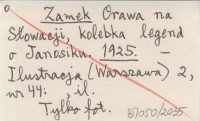 Zamek Orawa na
Słowacji, kolebka legend
o Janosiku. 1925. —
Ilustracja (Warszawa) 2,
nr 44: ; il.
Tylko fot.
87050/2035